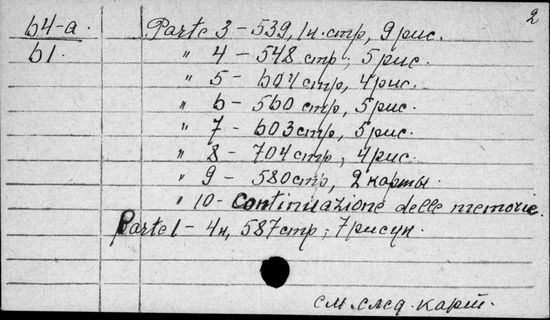 2
64-a. Parte 3 - 539, 1н. стр, 9 рис.
61. " 4 - 548 стр; 5 рис.
" 5 - 604 стр, 4 рис.
" 6 - 560 стр, 5 рис.
" 7 - 603 стр, 5 рис.
" 8 - 704 стр, 4 рис.
" 9 - 580 стр, 2 карты.
" 10 - Continuazione delle memorie.
Parte 1 - 4н, 587 стр; 7 рисун.
см. след. карт.